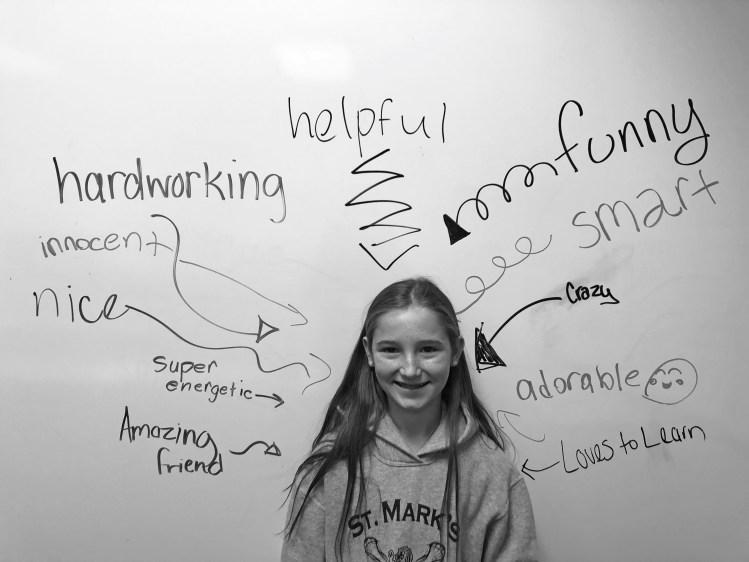 helpful
funny
hardworking
smart
innocent
nice
Crazy
super
energetic
adorable
Amazing
friend
Loves to Learn
ST. MARK'S